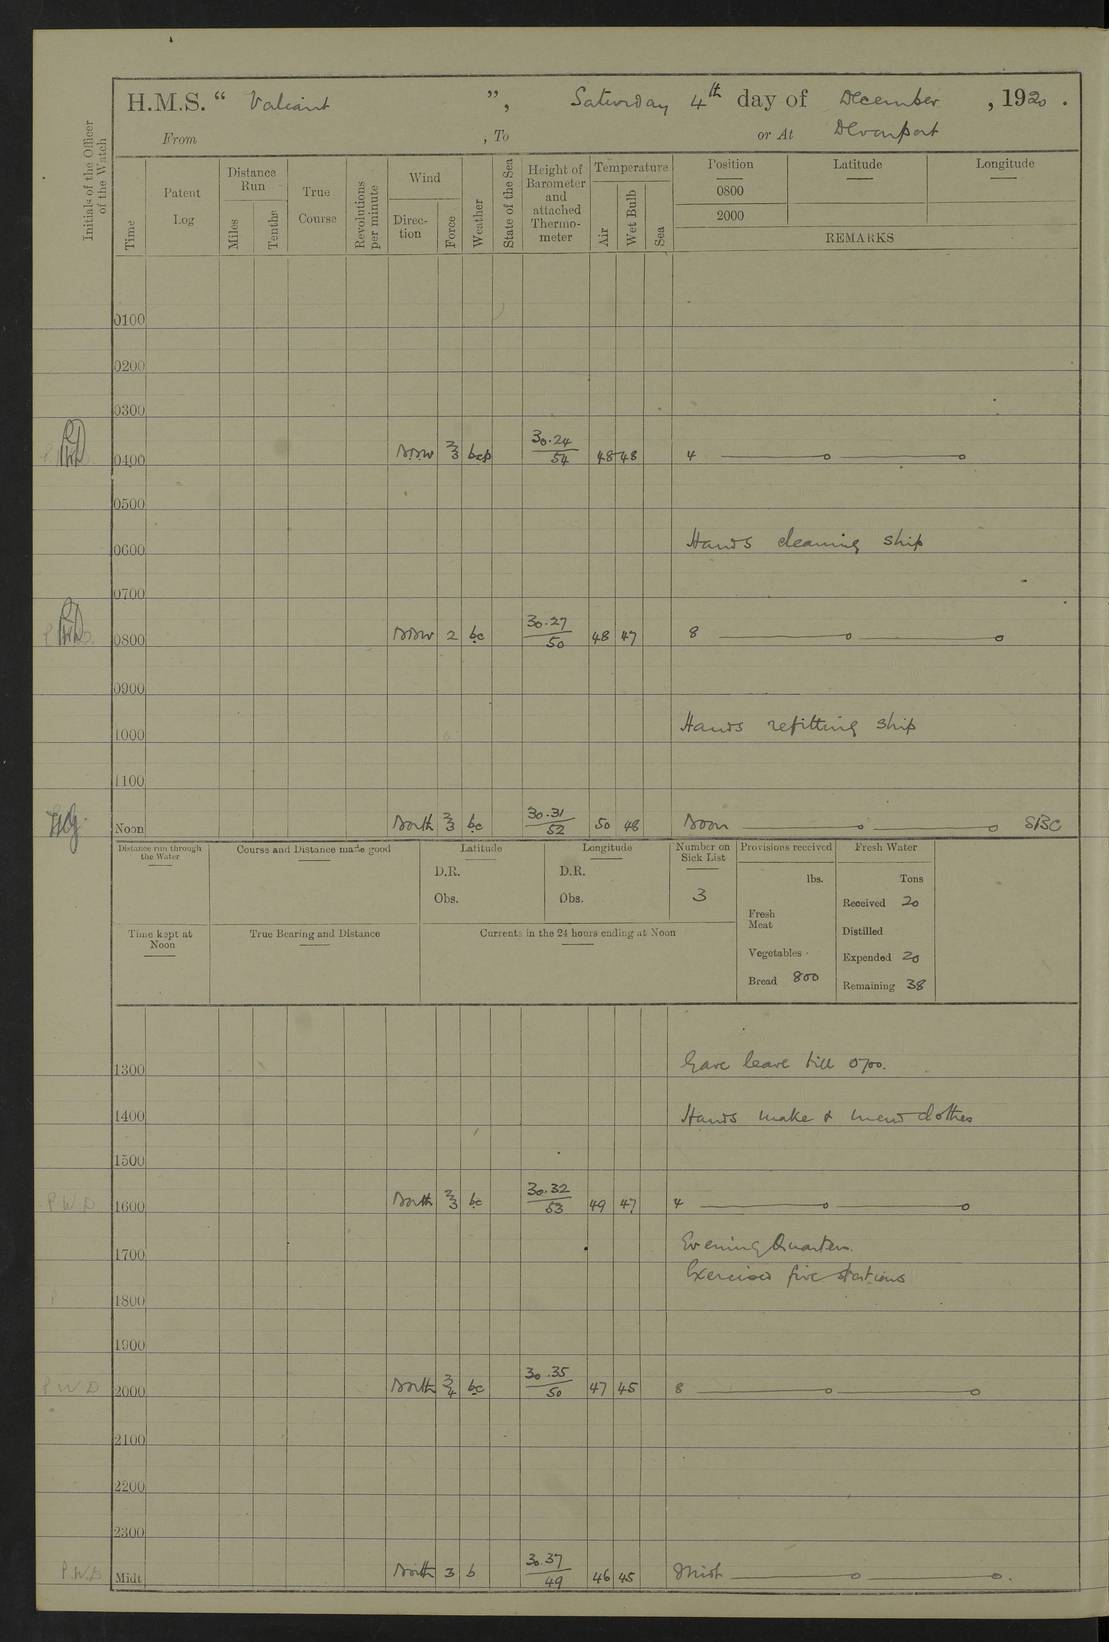 H.M.S. “ Valiant ”, Saturday 4th day of December , 1920 .
From , To or At Devonport
Initials of the Officer of the Watch
Time
Patent Log
Distance Run
Miles
Tenths
True Course
Revolutions per minute
Wind
Direction
Force
Weather
State of the Sea
Height of Barometer and attached Thermometer
Temperature
Air
Wet Bulb
Sea
Position Latitude Longitude
0800
2000
REMARKS
0100
0200
0300
0400 NNW 2/3 bcp 30.24/54 48 48 4
0500
0600 Hands cleaning ship
0700
0800 NNW 2 bc 30.27/50 48 47 8
0900
1000 Hands refitting ship
1100
Noon North 2/3 bc 30.31/52 50 48 Noon SBC
Distance run through the Water
Course and Distance made good
Latitude
D.R.
Obs.
Longitude
D.R.
Obs.
Number on Sick List
3
Provisions received
lbs.
Fresh Meat
Vegetables
Bread 800
Fresh Water
Tons
Received 20
Distilled
Expended 20
Remaining 38
Time kept at Noon
True Bearing and Distance
Currents in the 24 hours ending at Noon
1300 Gave leave till 0700.
1400 Hands make & mend clothes
1500
P W D 1600 North 2/3 bc 30.32/53 49 47 4
1700 Evening Quarters.
Exercised fire stations
1800
1900
P W D 2000 North 3/4 bc 30.35/50 47 45 8
2100
2200
2300
P.W.D Midt North 3 b 30.37/49 46 45 Midt